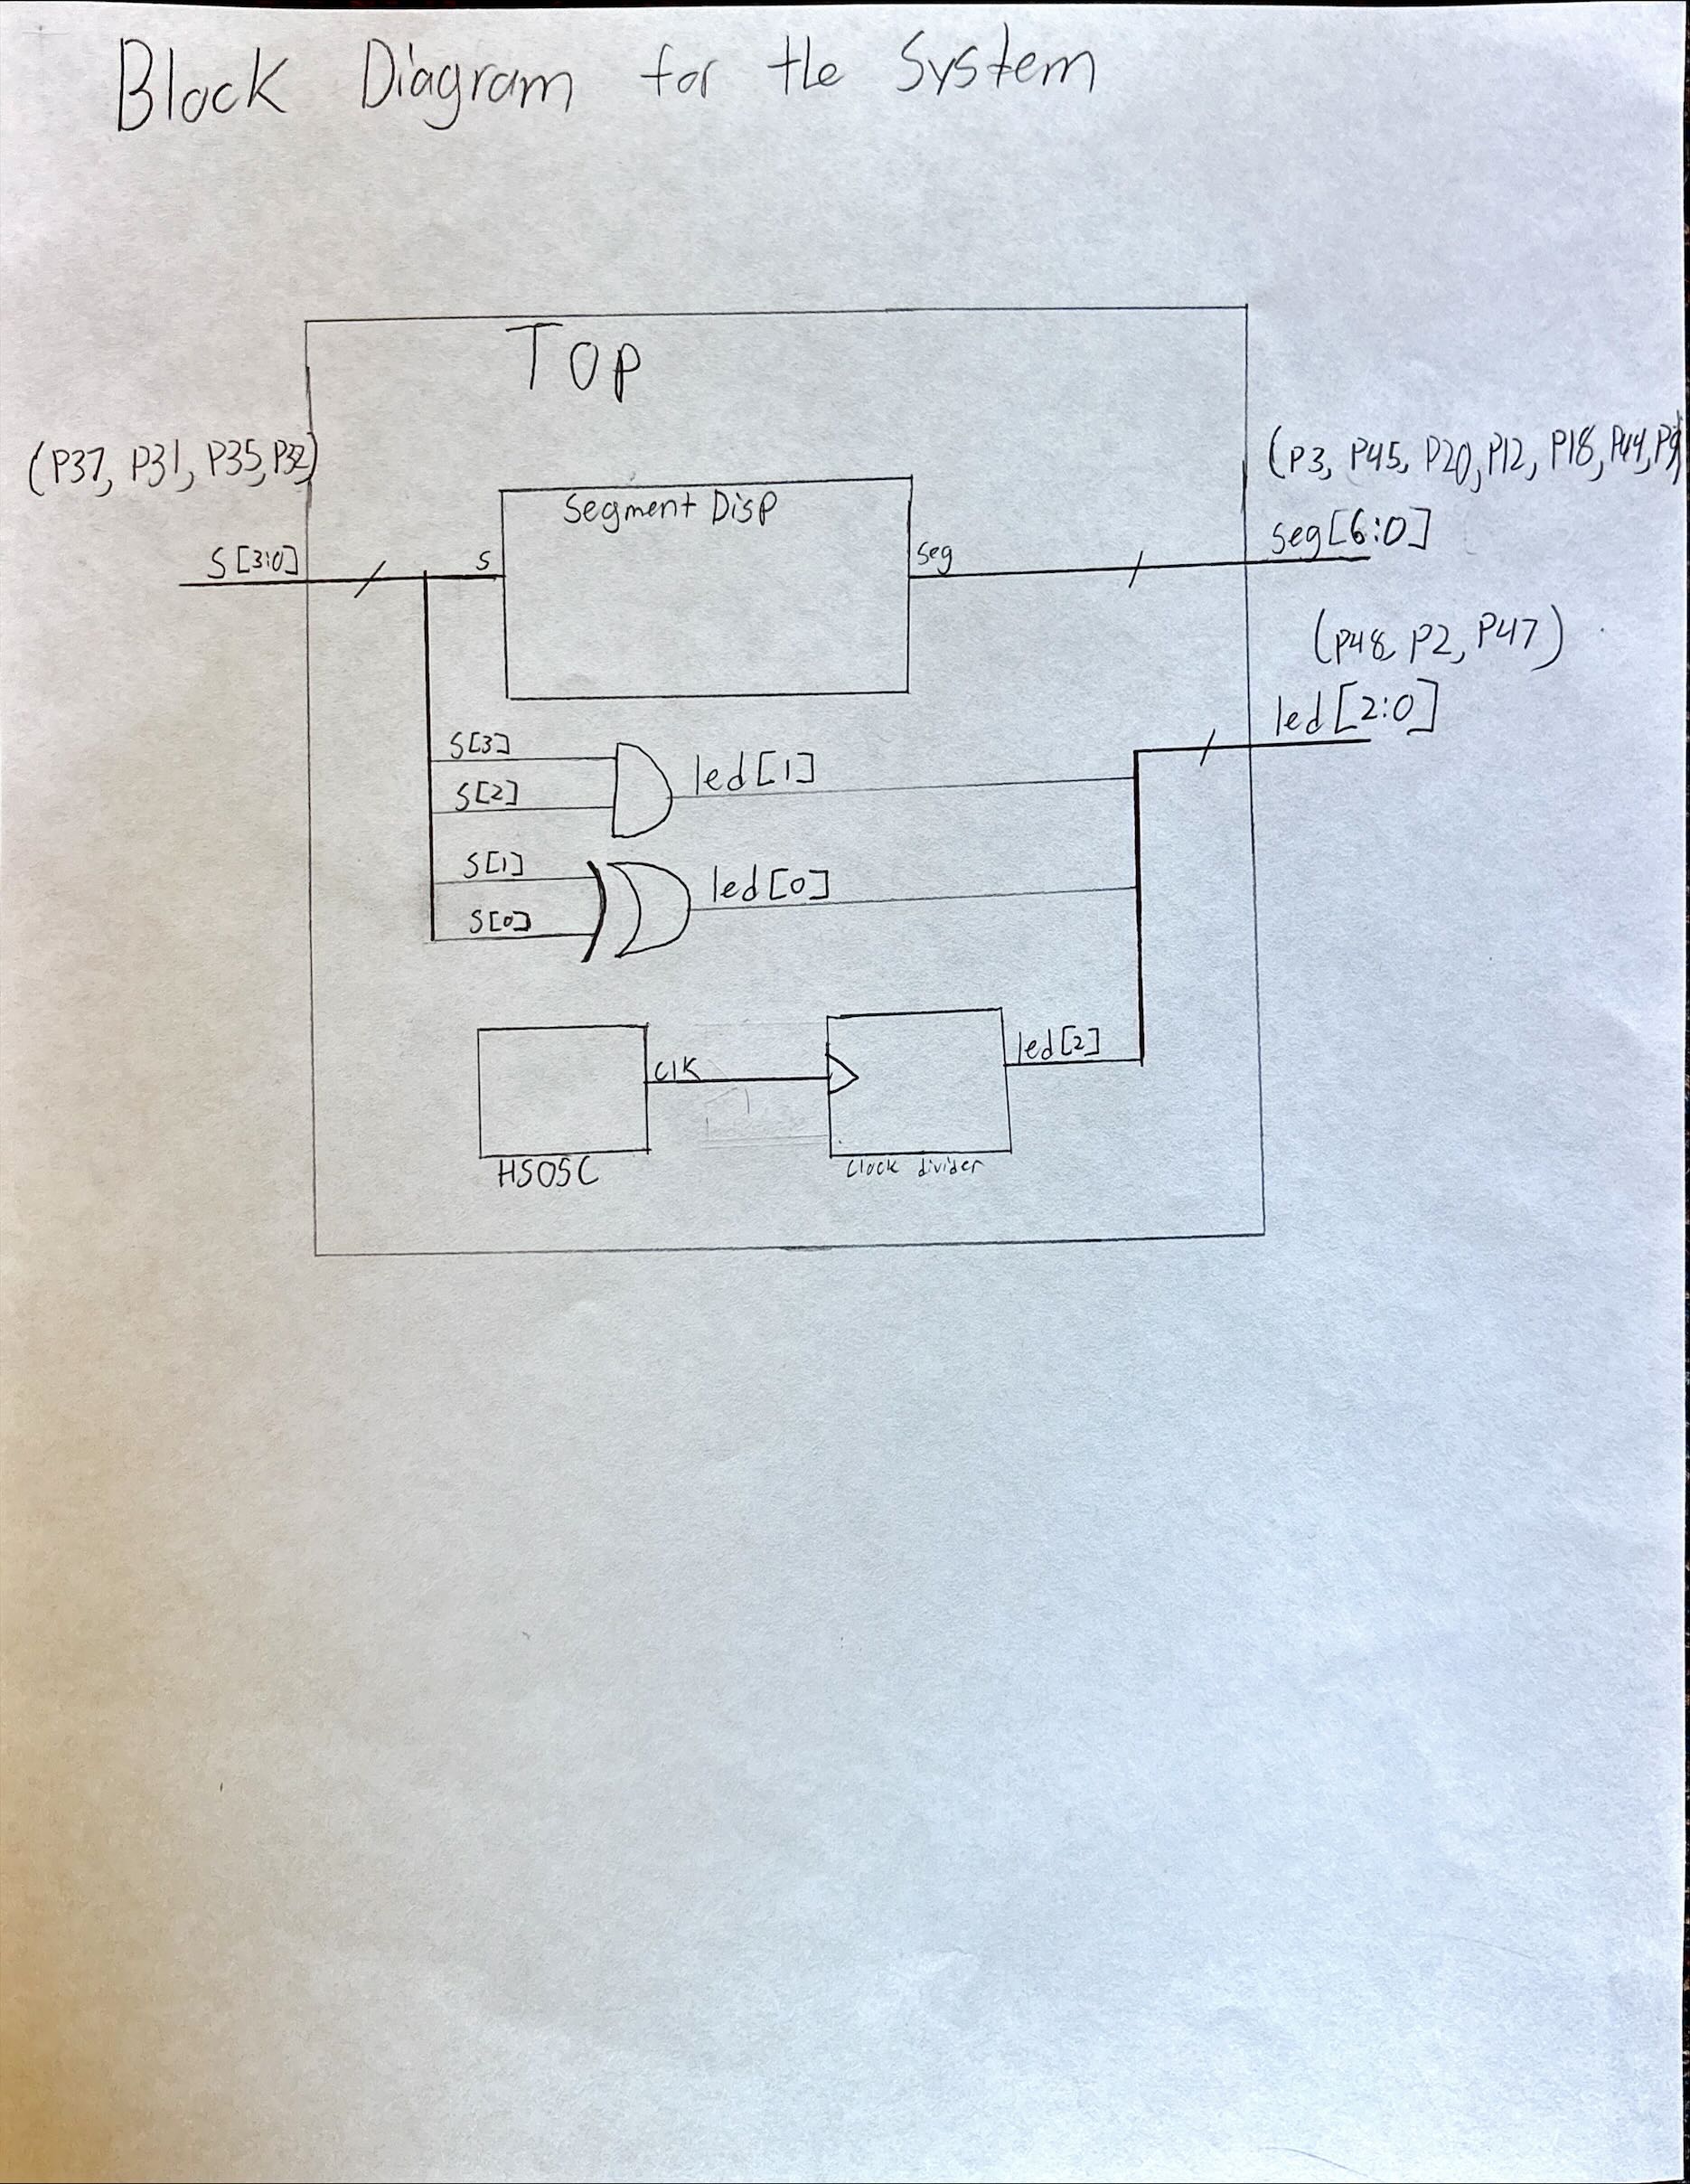 Block Diagram for the System
Top
(P37, P31, P35, P32)
S[3:0]
s
Segment Disp
seg
(P3, P45, P20, P12, P18, P44, P9)
seg[6:0]
(P48, P2, P47)
led[2:0]
S[3]
S[2]
led[1]
S[1]
S[0]
led[0]
clk
led[2]
HSOSC
Clock divider